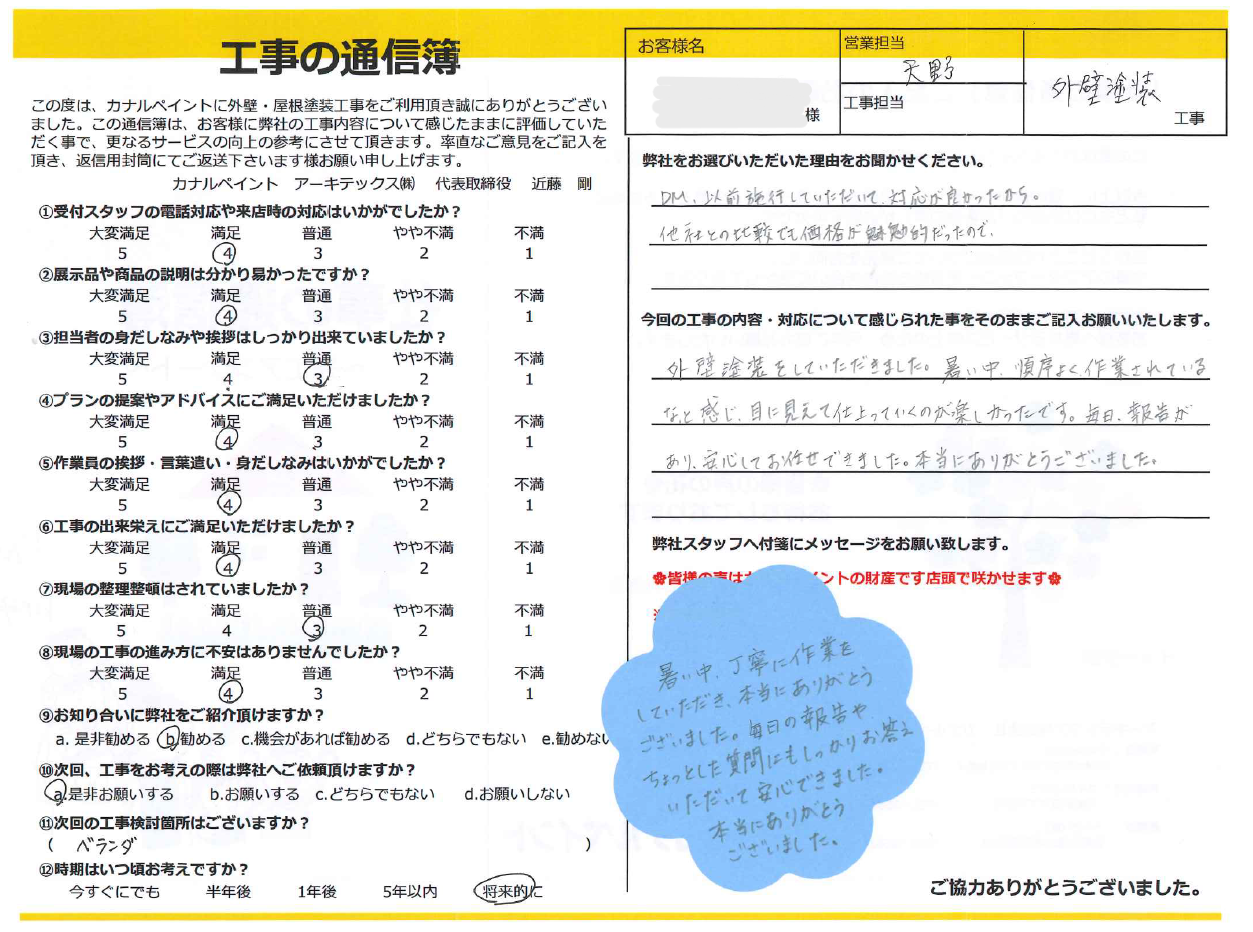 工事の通信簿
この度は、カナルペイントに外壁・屋根塗装工事をご利用頂き誠にありがとうござい
ました。この通信簿は、お客様に弊社の工事内容について感じたままに評価していた
だく事で、更なるサービスの向上の参考にさせて頂きます。率直なご意見をご記入を
頂き、返信用封筒にてご返送下さいます様お願い申し上げます。
カナルペイント アーキテックス㈱ 代表取締役 近藤 剛
①受付スタッフの電話対応や来店時の対応はいかがでしたか？
大変満足 満足 普通 やや不満 不満
5 4 3 2 1
②展示品や商品の説明は分かり易かったですか？
大変満足 満足 普通 やや不満 不満
5 4 3 2 1
③担当者の身だしなみや挨拶はしっかり出来ていましたか？
大変満足 満足 普通 やや不満 不満
5 4 3 2 1
④プランの提案やアドバイスにご満足いただけましたか？
大変満足 満足 普通 やや不満 不満
5 4 3 2 1
⑤作業員の挨拶・言葉遣い・身だしなみはいかがでしたか？
大変満足 満足 普通 やや不満 不満
5 4 3 2 1
⑥工事の出来栄えにご満足いただけましたか？
大変満足 満足 普通 やや不満 不満
5 4 3 2 1
⑦現場の整理整頓はされていましたか？
大変満足 満足 普通 やや不満 不満
5 4 3 2 1
⑧現場の工事の進み方に不安はありませんでしたか？
大変満足 満足 普通 やや不満 不満
5 4 3 2 1
⑨お知り合いに弊社をご紹介頂けますか？
a. 是非勧める b.勧める c.機会があれば勧める d.どちらでもない e.勧めない
⑩次回、工事をお考えの際は弊社へご依頼頂けますか？
a.是非お願いする b.お願いする c.どちらでもない d.お願いしない
⑪次回の工事検討箇所はございますか？
( ベランダ )
⑫時期はいつ頃お考えですか？
今すぐにでも 半年後 1年後 5年以内 将来的に
お客様名
様
営業担当
天野
工事担当
外壁塗装
工事
弊社をお選びいただいた理由をお聞かせください。
DM、以前施行していただいて、対応が良かったから。
他社との比較でも価格が魅勉的だったので、
今回の工事の内容・対応について感じられた事をそのままご記入お願いいたします。
外壁塗装をしていただきました。暑い中、順序よく、作業されている
なと感じ、目に見えて仕上っていくのが楽しかったです。毎日、報告が
あり、安心してお任せできました。本当にありがとうございました。
弊社スタッフへ付箋にメッセージをお願い致します。
✿皆様の声は イントの財産です店頭で咲かせます✿
暑い中、丁寧に作業を
していただき、本当にありがとう
ございました。毎日の報告や、
ちょっとした質問にもしっかりお答え
いただいて安心できました。
本当にありがとう
ございました。
ご協力ありがとうございました。